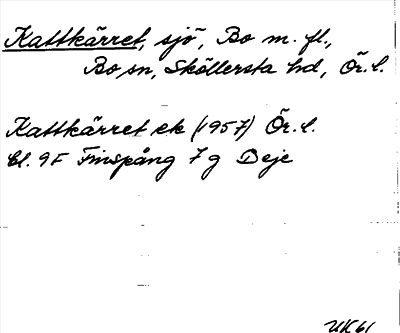 Kattkärret, sjö, Bo m. fl.,
Bo sn, Sköllersta hd, Ör. l.
Kattkärret ek (1957) Ör. l.
bl. 9F Finspång 7 g Deje
UK61